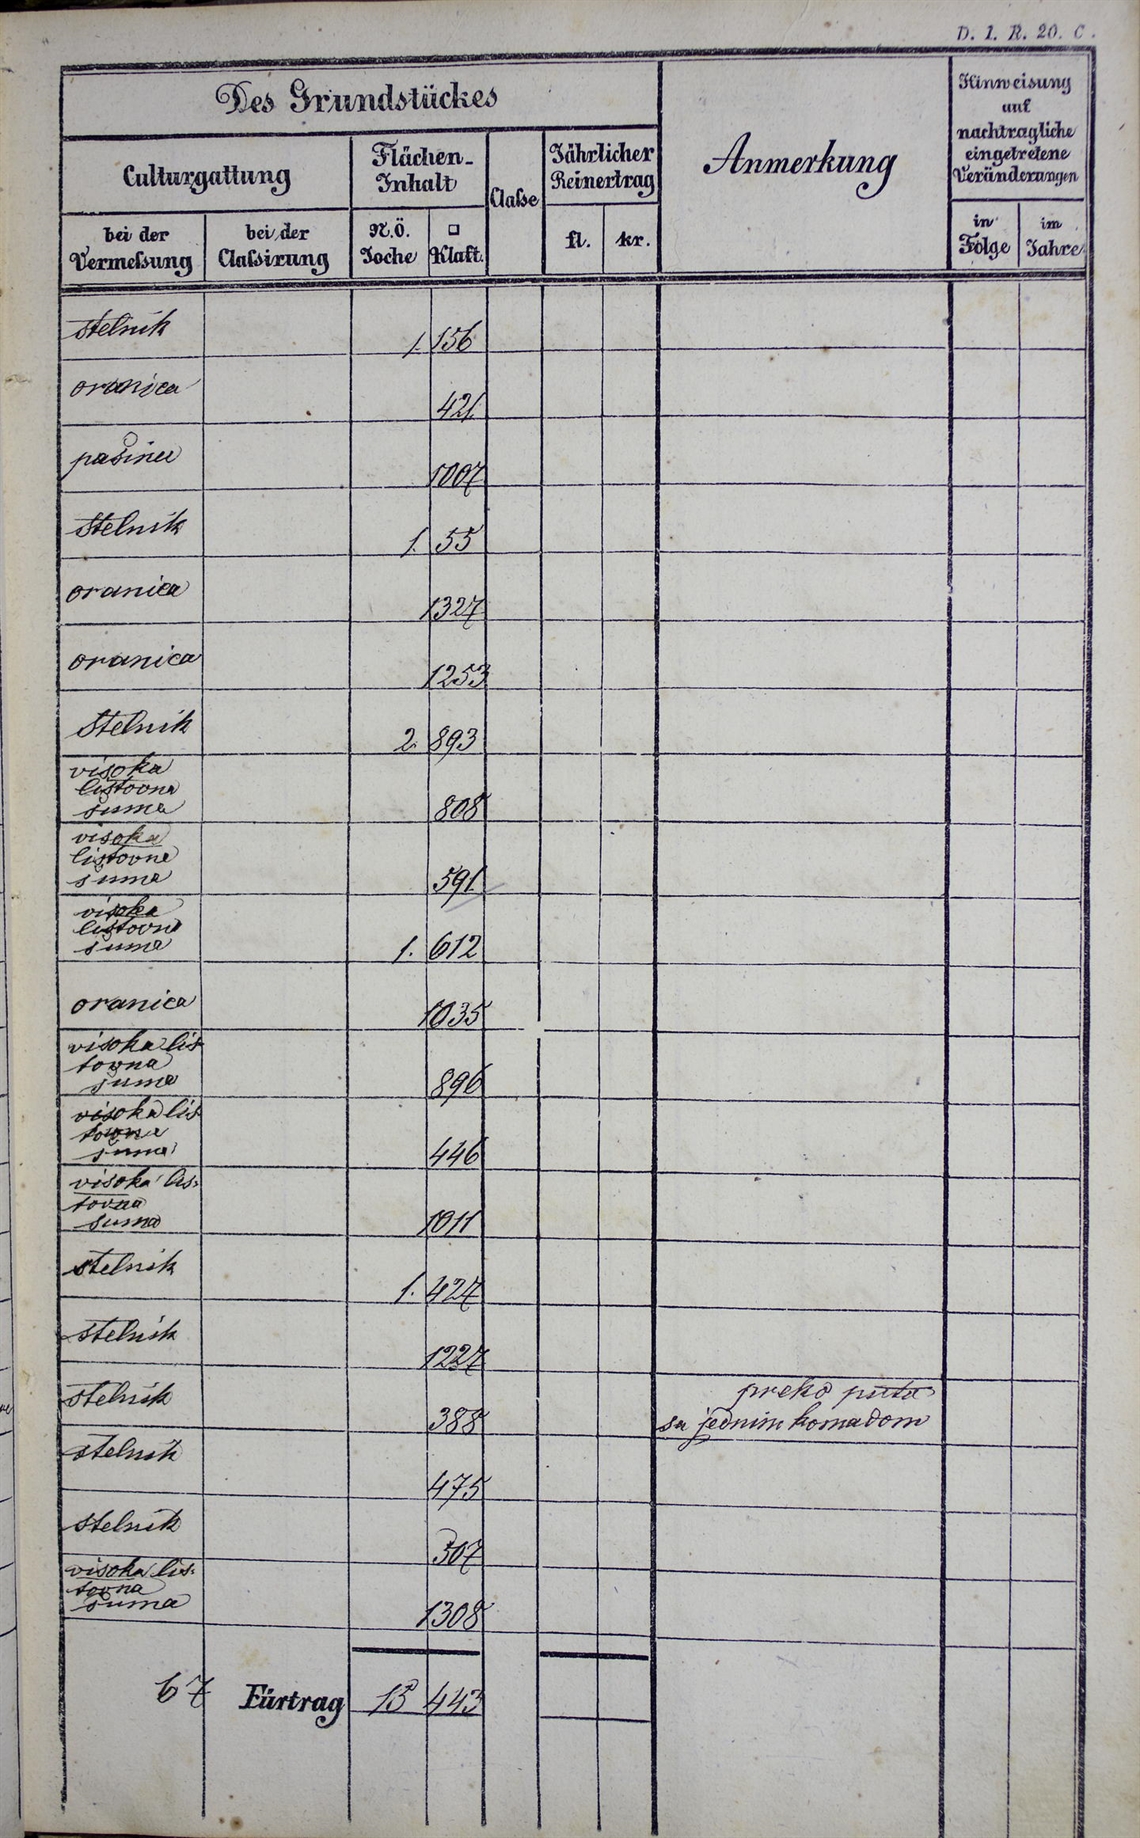 D. I. R. 20. C.
Des Grundstückes
Anmerkung
Hinweisung
auf
nachtragliche
eingetretene
Veränderungen
Culturgattung
Flächen-
Inhalt
Classe
Jährlicher
Reinertrag
bei der
Vermessung
bei der
Classirung
N.Ö.
Joche
□
Klaft.
fl.
kr.
in
Folge
im
Jahre
stelnik 1. 156
oranica 421
1007
stelnik 1. 55
oranica 1327
oranica 1253
Stelnik 2. 893
visoka
listovna
suma 808
visoka
listovna
suma 591
visoka
listovna
suma 1. 612
oranica 1035
visoka lis
tovna
suma 896
visoka lis
tovna
suma 446
visoka lis-
tovna
suma 1011
stelnik 1. 427
stelnik 1227
stelnik 388 preko puta
sa jednim komadom
stelnik 475
stelnik 307
visoka lis-
tovna
suma 1308
67 Fürtrag 13 443